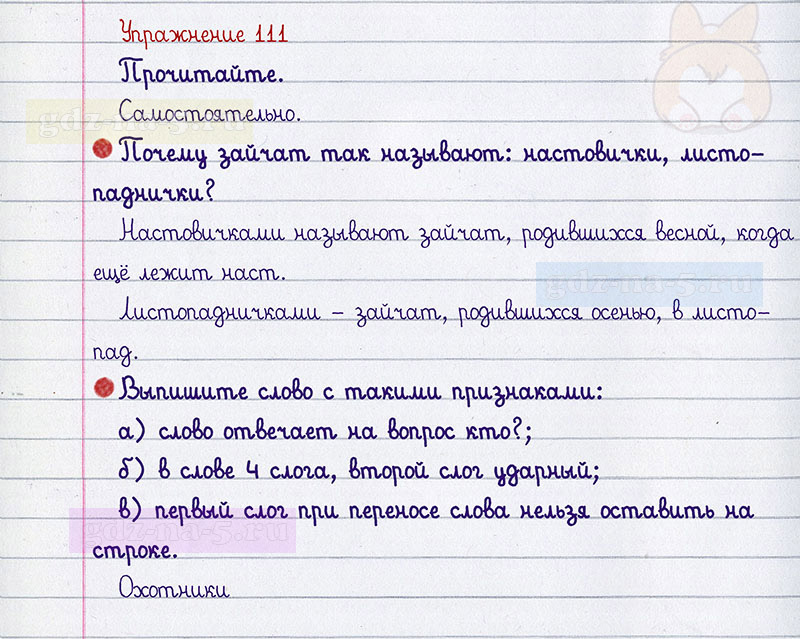 Упражнение 111
Прочитайте.
Самостоятельно.
gdz-na-5.ru
Почему зайчат так называют: настовички, листо-
паднички?
Настовичками называют зайчат, родившихся весной, когда
ещё лежит наст.
gdz-na-5.ru
Листопадничками – зайчат, родившихся осенью, в листо-
пад.
Выпишите слово с такими признаками:
а) слово отвечает на вопрос кто?;
б) в слове 4 слога, второй слог ударный;
в) первый слог при переносе слова нельзя оставить на
gdz-na-5.ru
строке.
Охотники